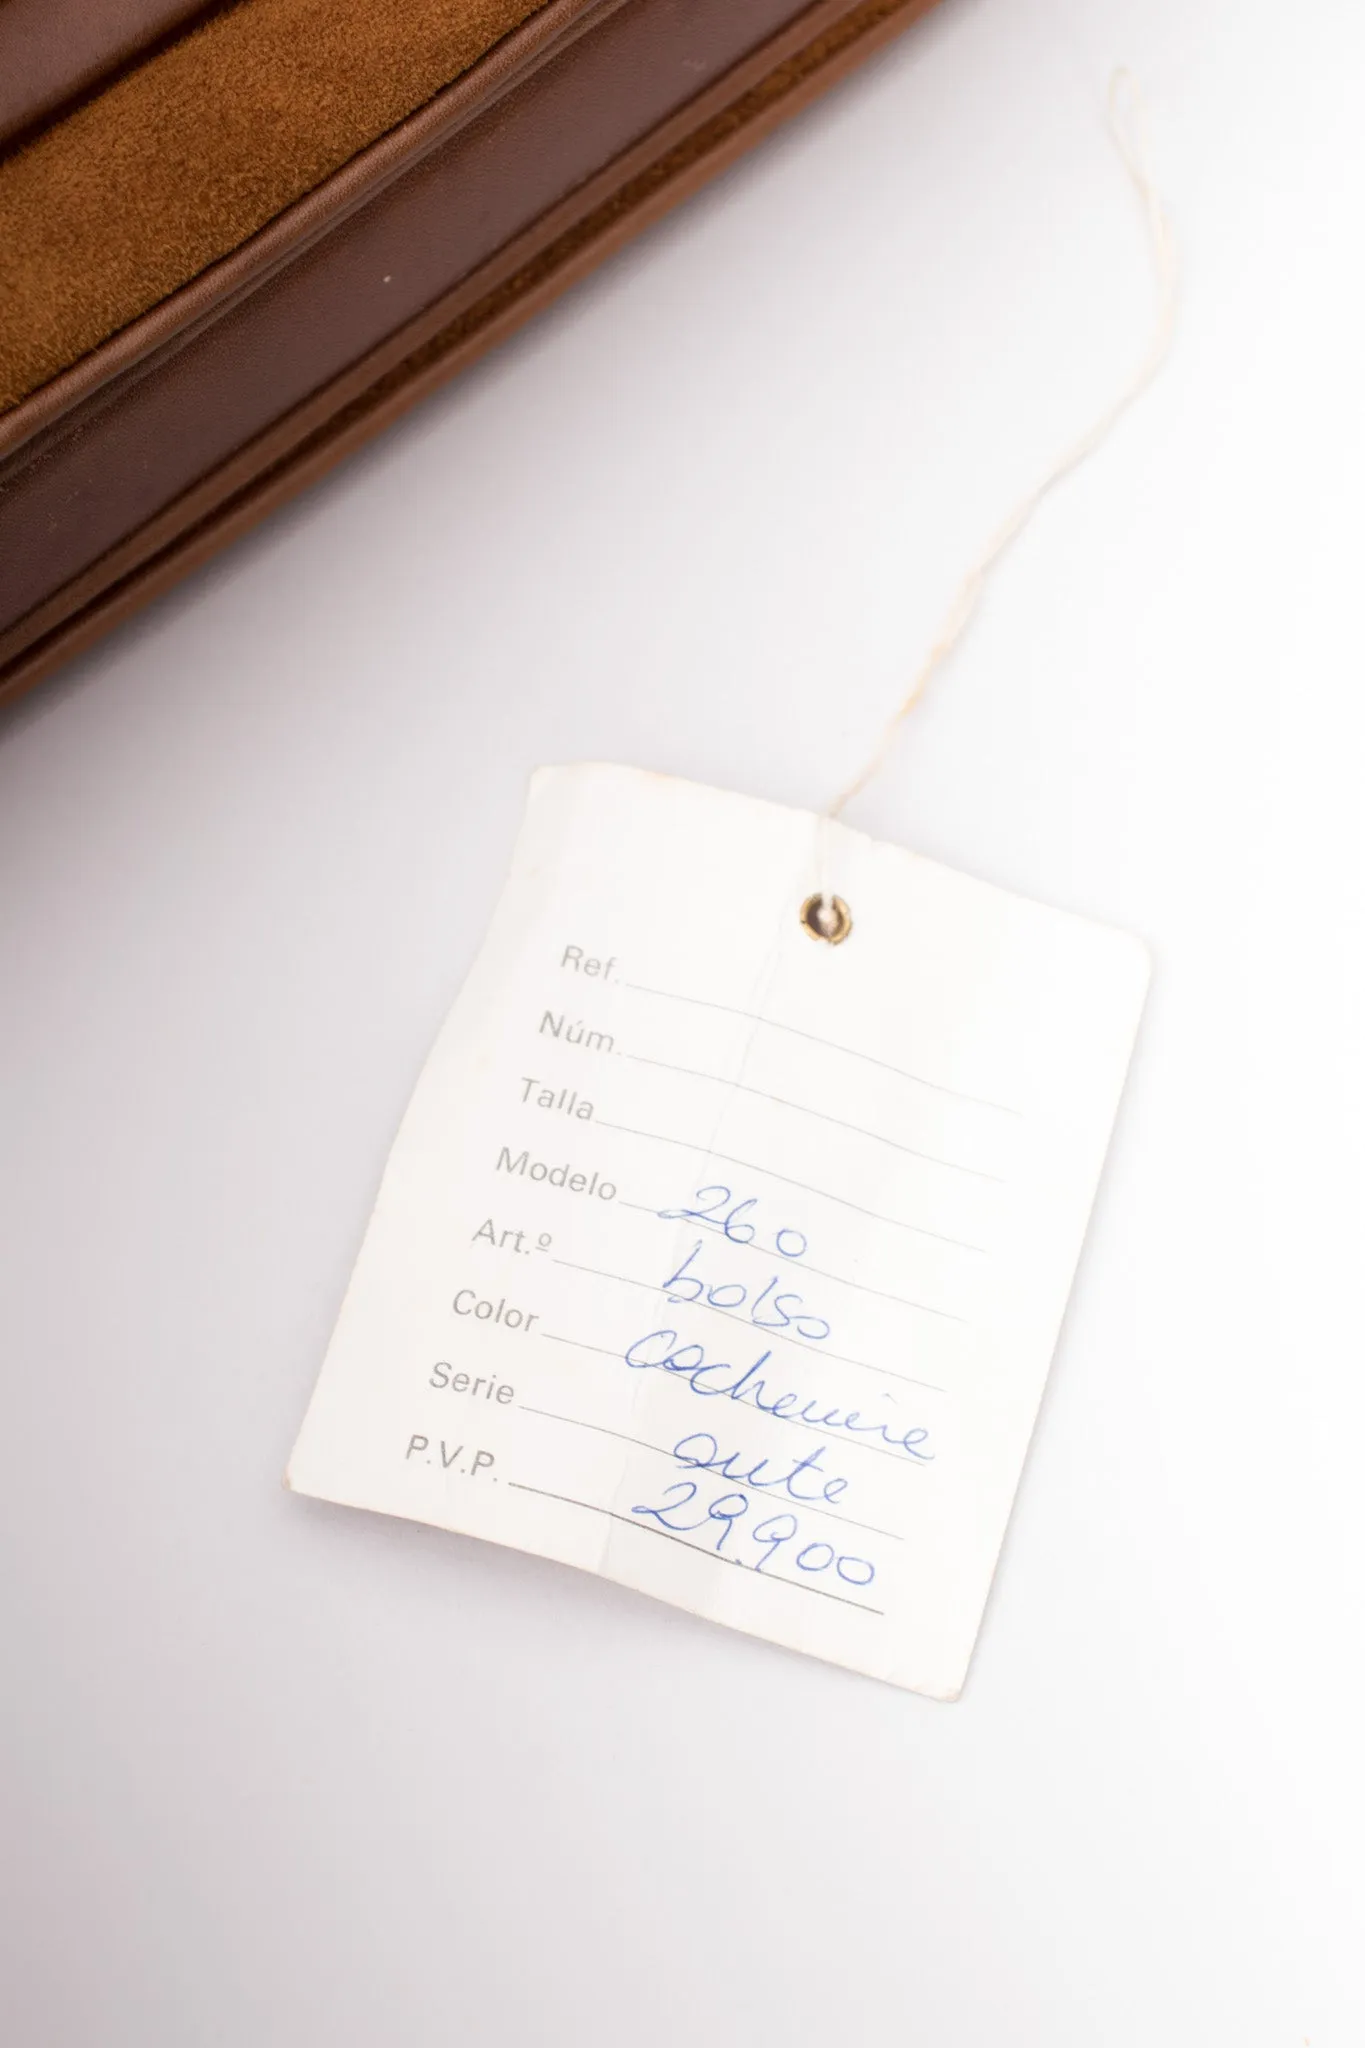 Ref.
Núm.
Talla
Modelo 260
Art.º bolso
Color cachemire
Serie ante
P.V.P. 29.900